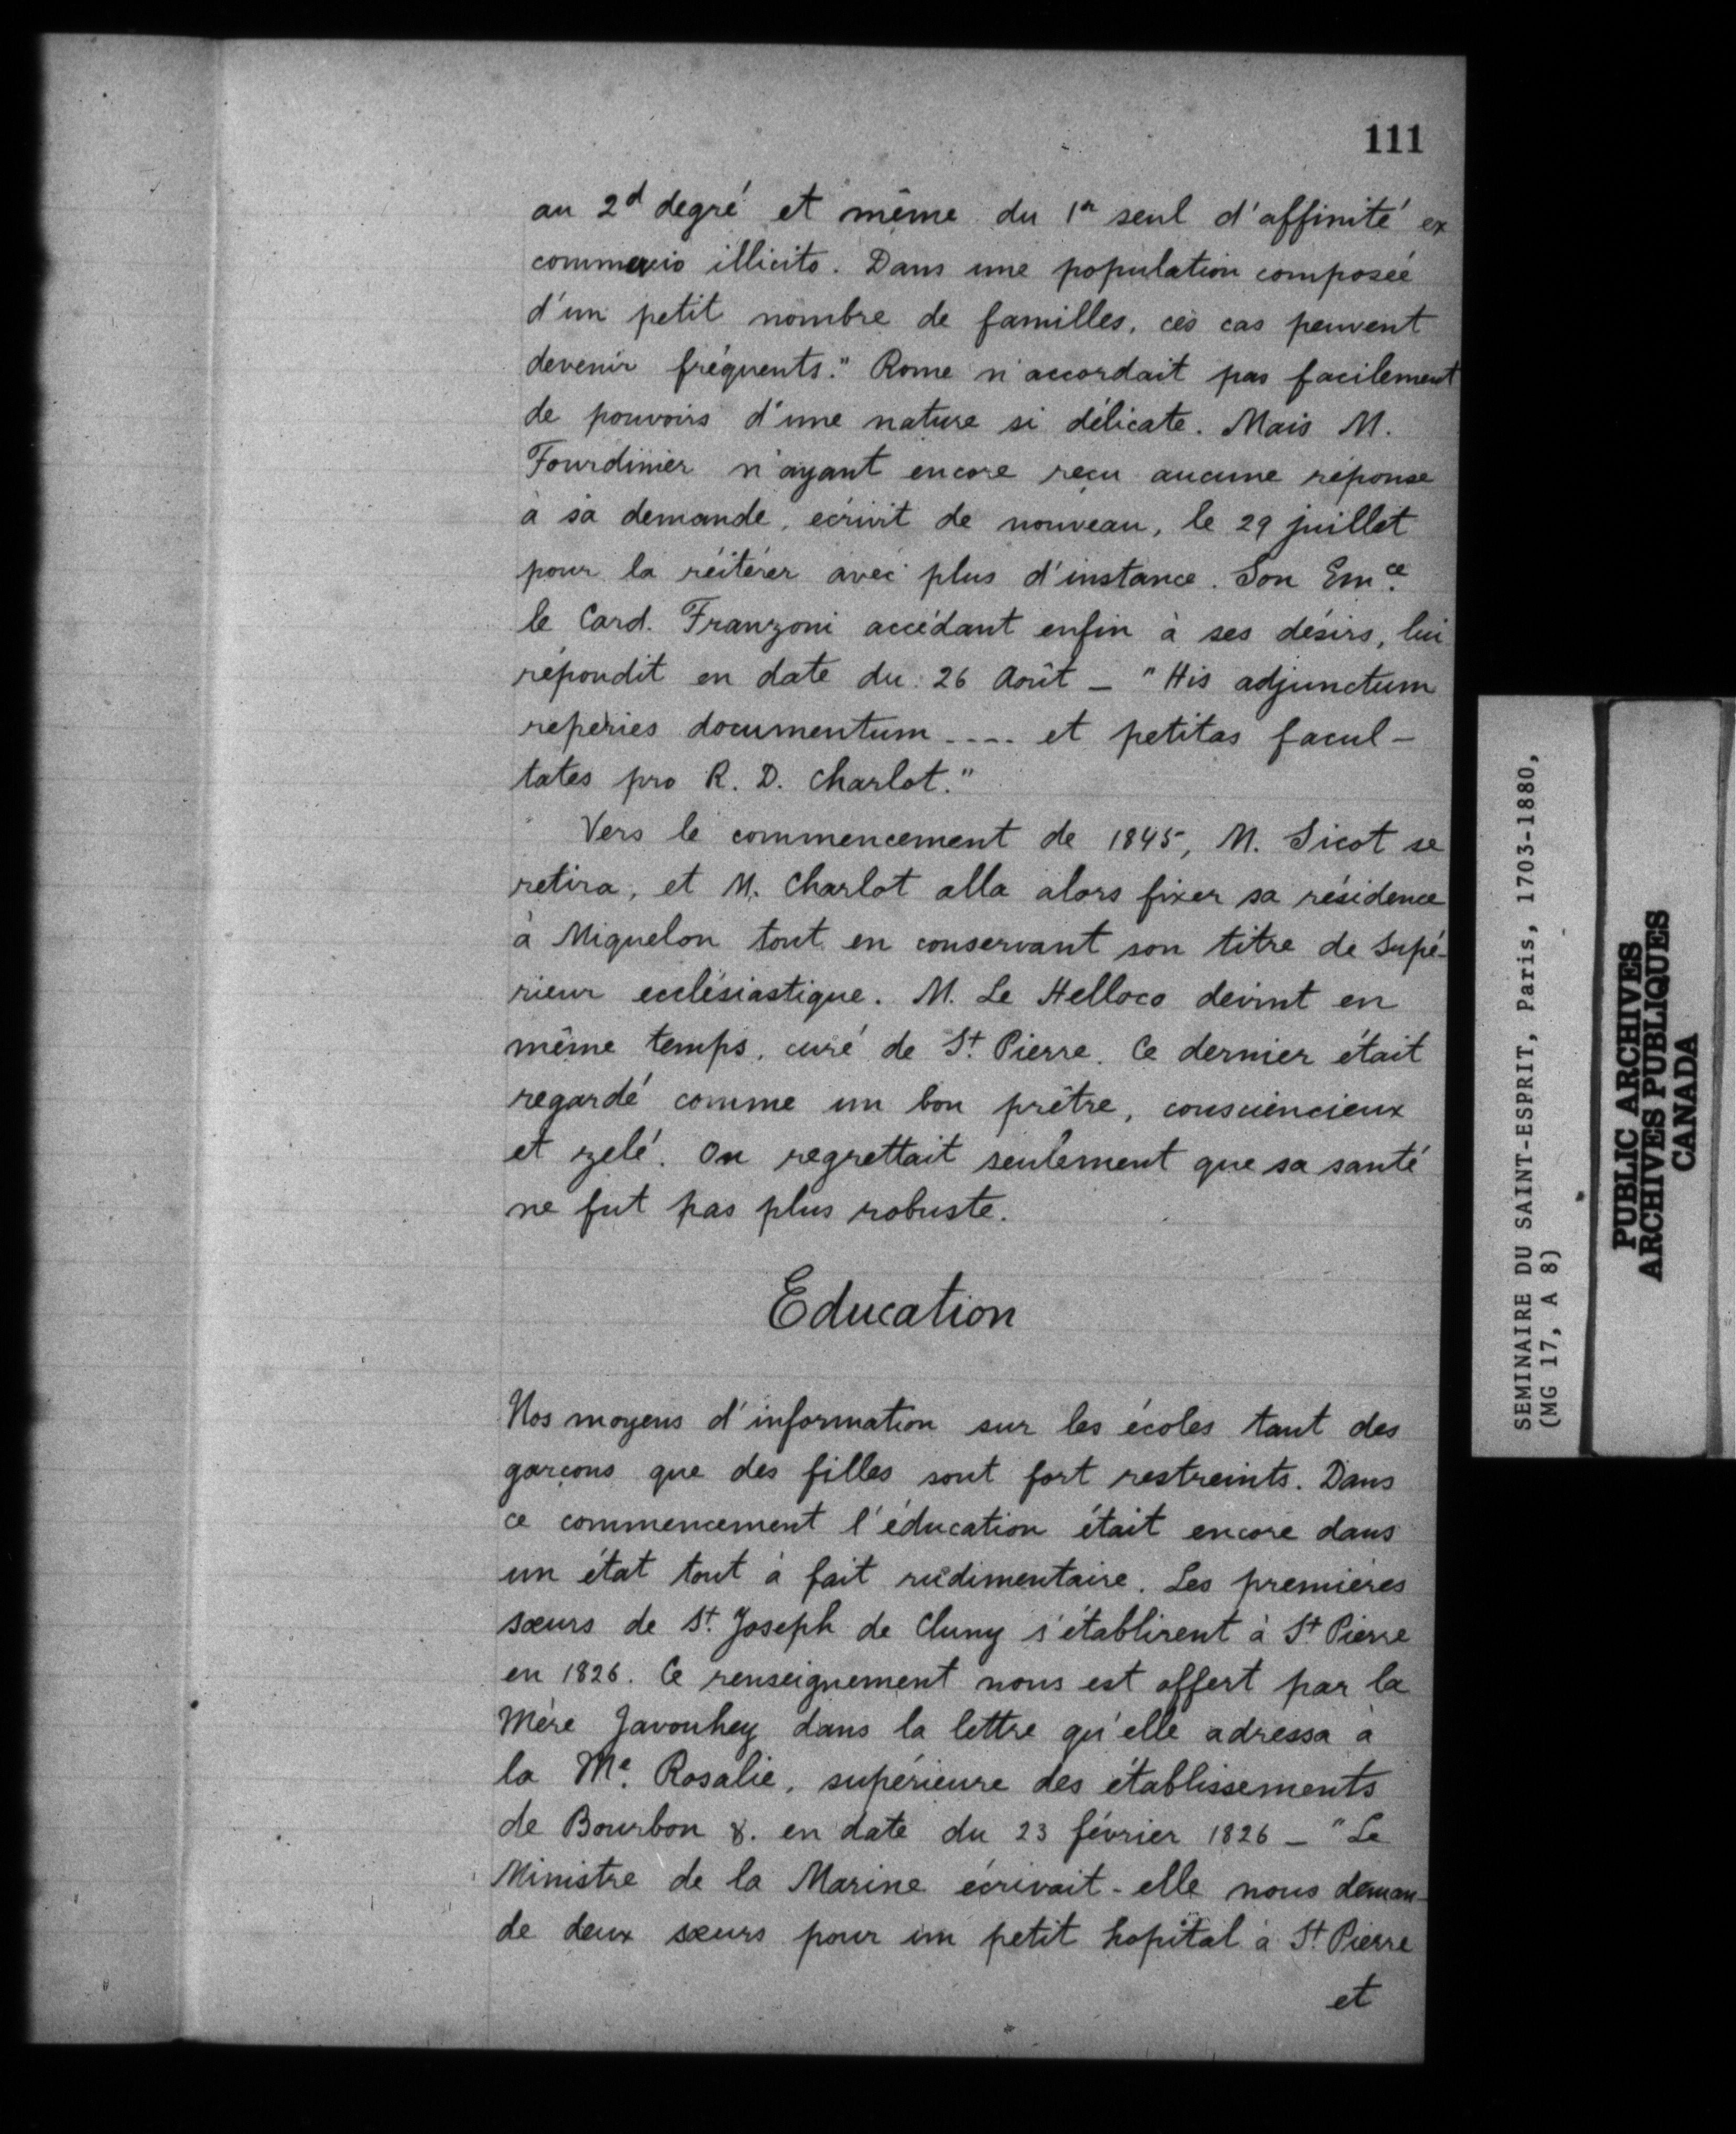 111
au 2d degré et même du 1er seul d'affinité ex
commercio illicito. Dans une population composée
d'un petit nombre de familles, ces cas peuvent
devenir fréquents." Rome n'accordait pas facilement
de pouvoirs d'une nature si délicate. Mais M.
Fourdinier n'ayant encore reçu aucune réponse
à sa demande, écrivit de nouveau, le 29 juillet
pour la réitérer avec plus d'instance. Son Emce.
le Card. Franzoni accédant enfin à ses désirs, lui
répondit en date du 26 Août – "His adjunctum
reperies documentum .... et petitas facul-
tates pro R. D. Charlot."
Vers le commencement de 1845, M. Sicot se
retira, et M. Charlot alla alors fixer sa résidence
à Miquelon tout en conservant son titre de Supé-
rieur ecclésiastique. M. Le Helloco devint en
même temps, curé de St. Pierre. Ce dernier était
regardé comme un bon prêtre, consciencieux
et zelé. On regrettait seulement que sa santé
ne fut pas plus robuste.
Education
Nos moyens d'information sur les écoles tant des
garçons que des filles sont fort restreints. Dans
ce commencement l'éducation était encore dans
un état tout à fait rudimentaire. Les premières
sœurs de St. Joseph de Cluny s'établirent à St Pierre
en 1826. Ce renseignement nous est offert par la
Mère Javouhey dans la lettre qu'elle adressa à
la Me. Rosalie, supérieure des établissements
de Bourbon &. en date du 23 février 1826 – "Le
Ministre de la Marine écrivait-elle nous deman-
de deux sœurs pour un petit hopital à St. Pierre
et
SEMINAIRE DU SAINT-ESPRIT, Paris, 1703-1880,
(MG 17, A 8)
PUBLIC ARCHIVES
ARCHIVES PUBLIQUES
CANADA